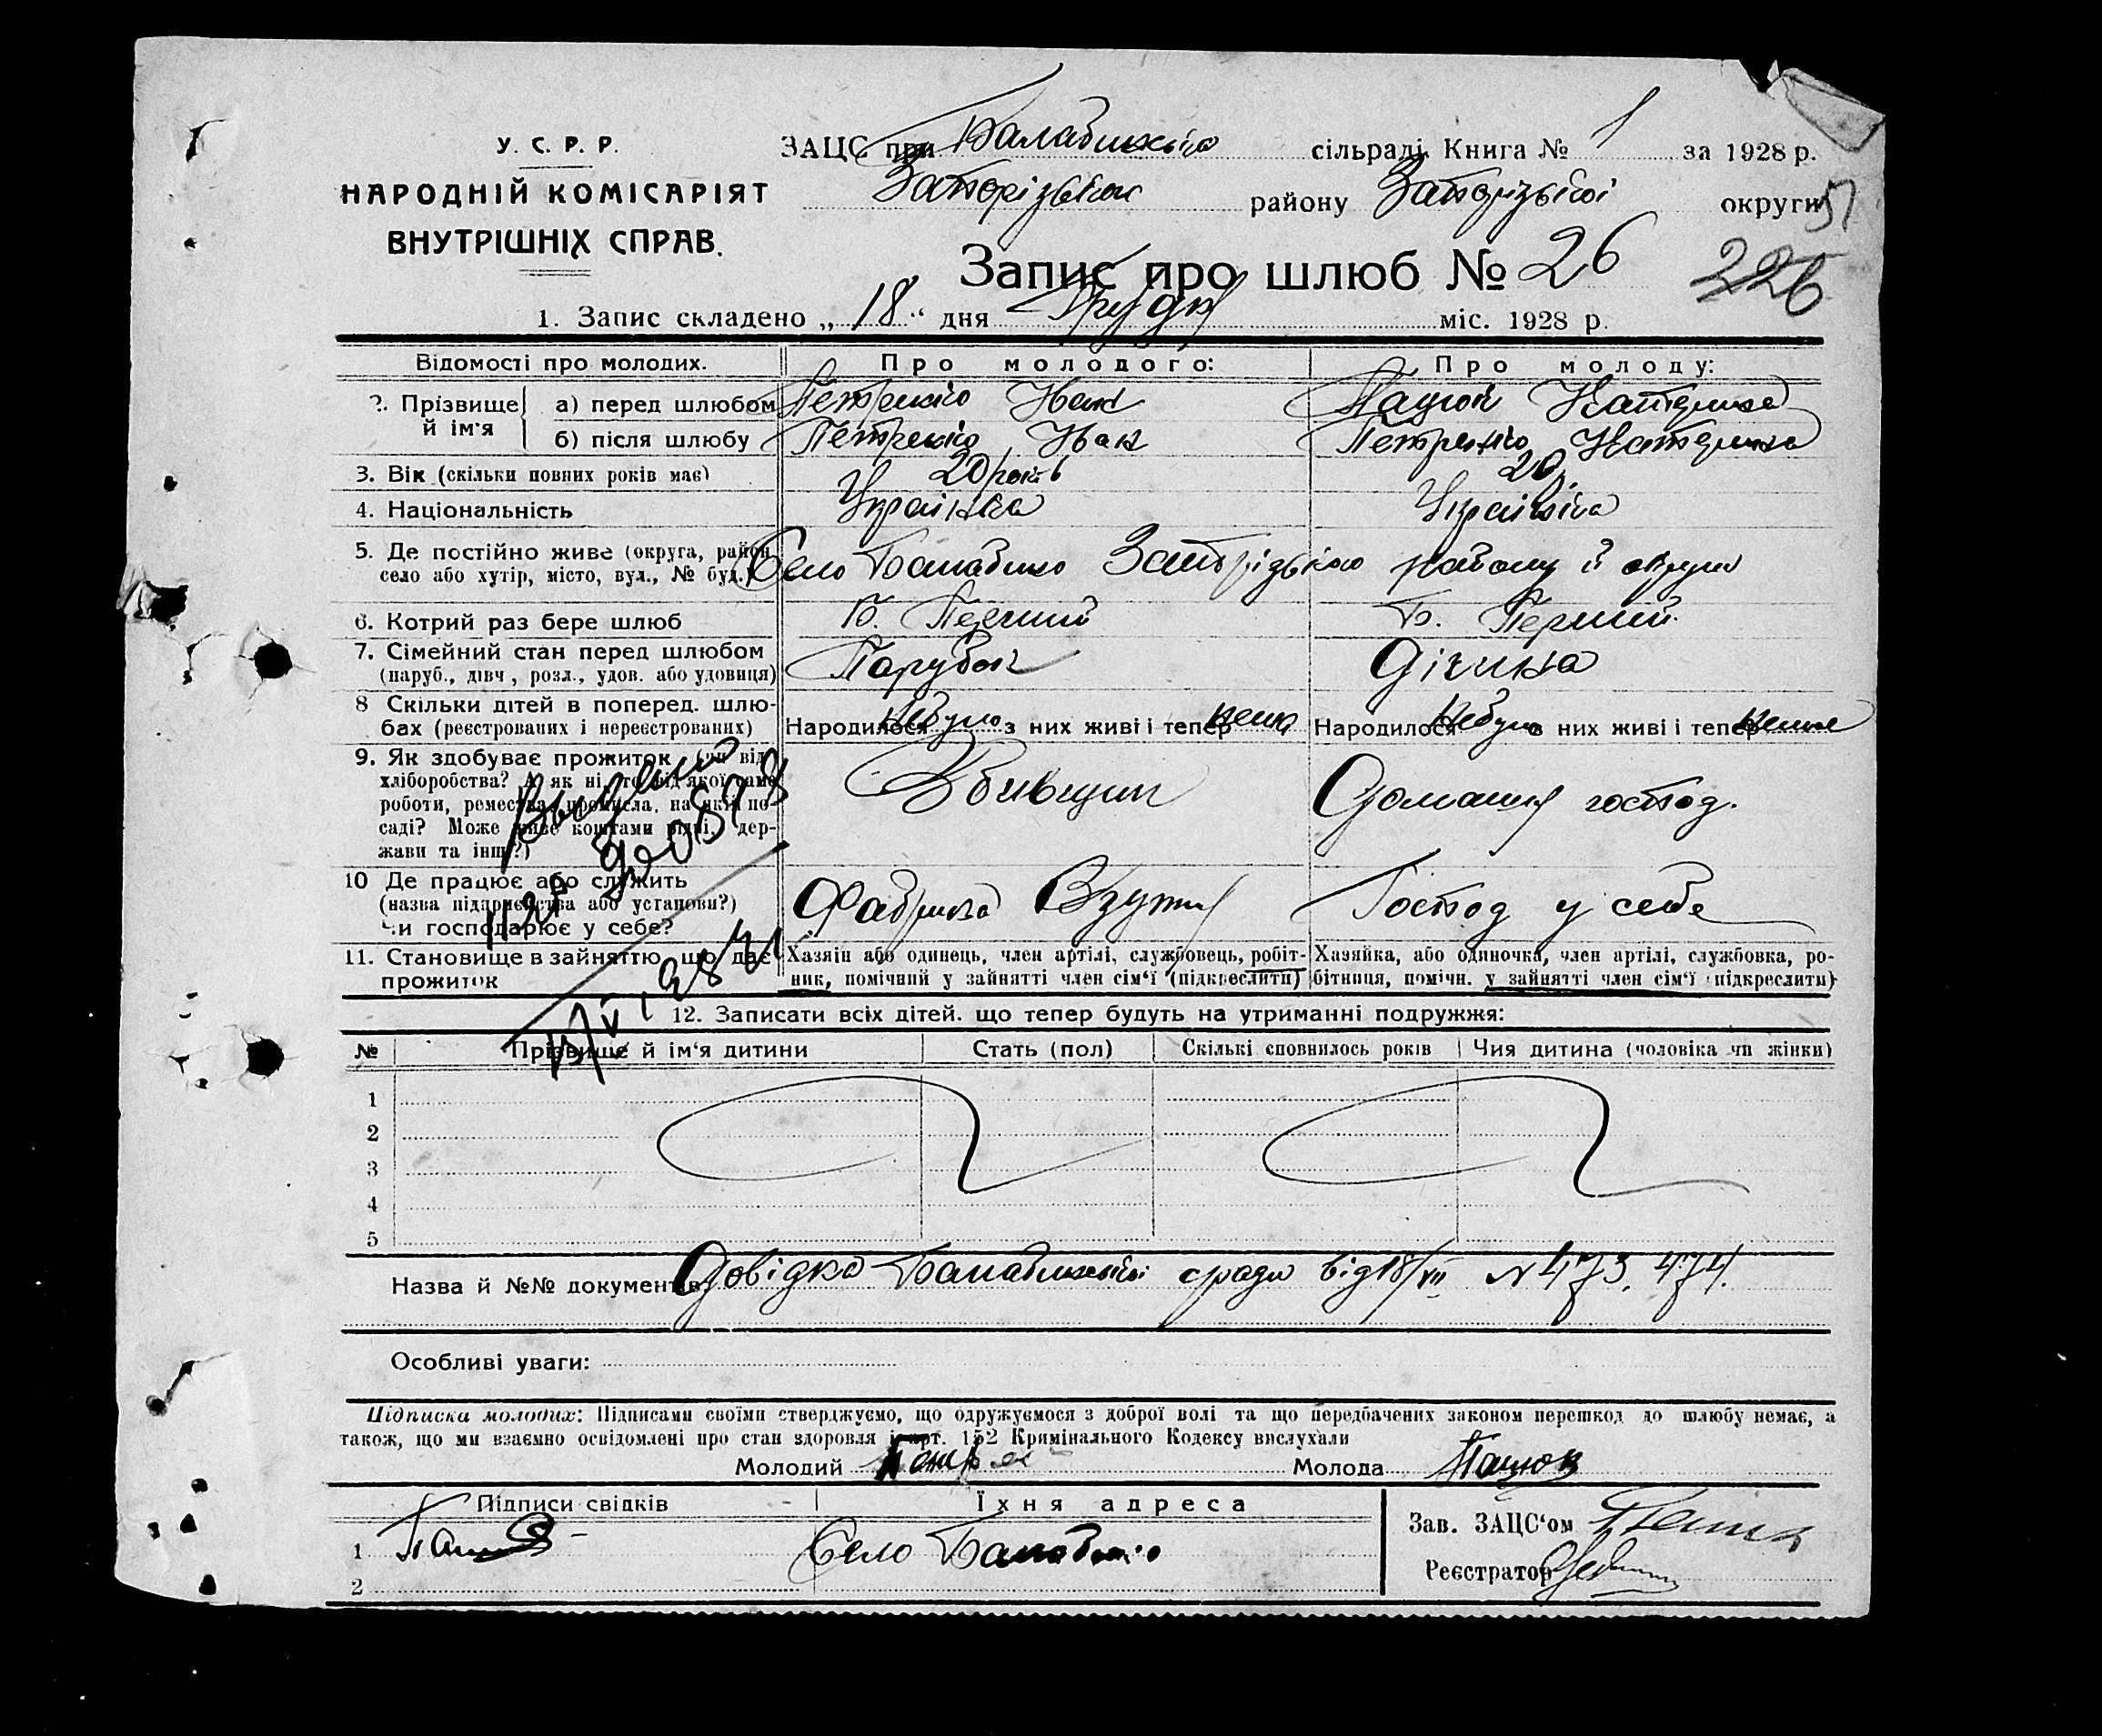 У. С. Р. Р.
НАРОДНІЙ КОМІСАРІЯТ
ВНУТРІШНІХ СПРАВ.
ЗАЦС при сільраді Книга № 1 за 1928 р.
району Запорізької округи 51
Запис про шлюб № 26 226
1. Запис складено „ 18 “ дня Грудня міс. 1928 р.
Відомості про молодих. Про молодого: Про молоду:
2. Прізвище й ім'я а) перед шлюбом Петренко Іван Пацюк Катерина
б) після шлюбу Петренко Іван Петренко Катерина
3. Вік (скільки повних років має) 20 років 20
4. Національність Українка
5. Де постійно живе (округа, район, село або хутір, місто, вул., № буд.) Село Балабино Запорізького району й округи
6. Котрий раз бере шлюб Б. Перший Б. Перший
7. Сімейний стан перед шлюбом Парубок Дівчина
(паруб., дівч, розл., удов. або удовиця)
8 Скільки дітей в поперед. шлю- Народилося Небуло з них живі і тепер нема Народилося Небуло з них живі і тепер нема
бах (реєстрованих і нереєстрованих)
9. Як здобуває прожиток (чи від
хліборобства? А як ні, то від якої саме
роботи, ремества, промисла, на якій по-
саді? Може живе коштами рідні, дер-
жави та інш.?)
Домашня господ.
10 Де працює або служить
(назва підприємства або установи?)
чи господарює у себе?
Фабрика Взуття Господ у себе
11. Становище в зайняттю, що дає
прожиток
Хазяін або одинець, член артілі, службовець, робіт-
ник, помічний у зайнятті член сім'ї (підкреслити)
Хазяйка, або одиночка, член артілі, службовка, ро-
бітниця, помічн. у зайнятті член сім'ї (підкреслити)
12. Записати всіх дітей. що тепер будуть на утриманні подружжя:
№ Прізвище й ім'я дитини Стать (пол) Скількі сповнилось років Чия дитина (чоловіка чи жінки)
1
2
3
4
5
Назва й №№ документів Довідка Балабинської с/ради від 18/VII N 473, 474.
Особливі уваги:
Підписка молодих: Підписами своїми стверджуємо, що одружуємося з доброї волі та що передбачених законом перешкод до шлюбу немає, а
також, що ми взаємно освідомлені про стан здоровля і арт. 152 Кримінального Кодексу вислухали
Молодий Молода Пацюк
Підписи свідків Їхня адреса
1 Село Балабино
2
Зав. ЗАЦС'ом
Реєстратор